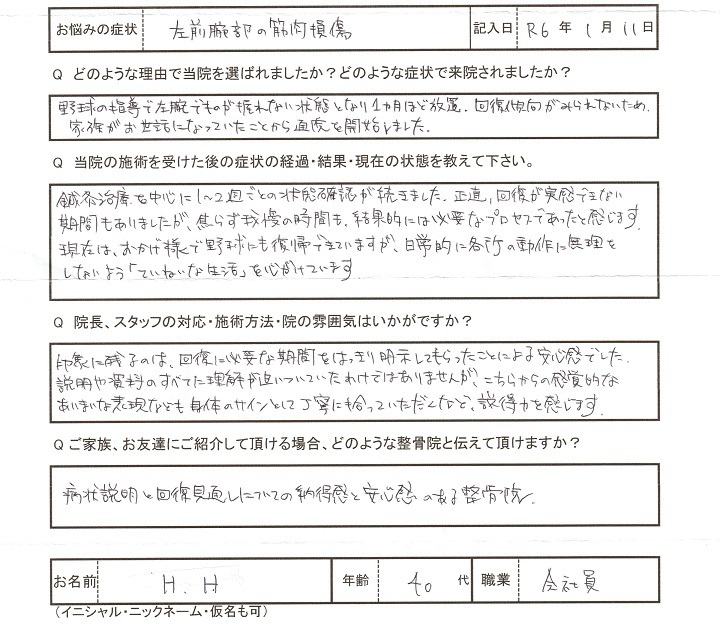 お悩みの症状 左前腕部の筋肉損傷 記入日 R6年1月11日
Q どのような理由で当院を選ばれましたか？どのような症状で来院されましたか？
野球の指導で左腕でものが握れない状態となり1カ月ほど放置。回復傾向がみられないため、
家族がお世話になっていたことから通院を開始しました。
Q 当院の施術を受けた後の症状の経過・結果・現在の状態を教えて下さい。
鍼灸治療を中心に1〜2週ごとの状態確認が続きました。正直、回復が実感できない
期間もありましたが、焦らず我慢の時間も、結果的には必要なプロセスであったと感じます。
現在は、おかげ様で野球にも復帰できていますが、日常的に各所の動作に無理を
しないよう「ていねいな生活」を心がけています。
Q 院長、スタッフの対応・施術方法・院の雰囲気はいかがですか？
印象に残るのは、回復に必要な期間をはっきり明示してもらったことによる安心感でした。
説明や資料のすべてに理解が追いついていたわけではありませんが、こちらからの感覚的な
あいまいな表現なども身体のサインとして丁寧に拾っていただくなど、説得力を感じます。
Qご家族、お友達にご紹介して頂ける場合、どのような整骨院と伝えて頂けますか？
病状説明と回復見通しについての納得感と安心感のある整骨院。
お名前 H.H 年齢 40代 職業 会社員
（イニシャル・ニックネーム・仮名も可）